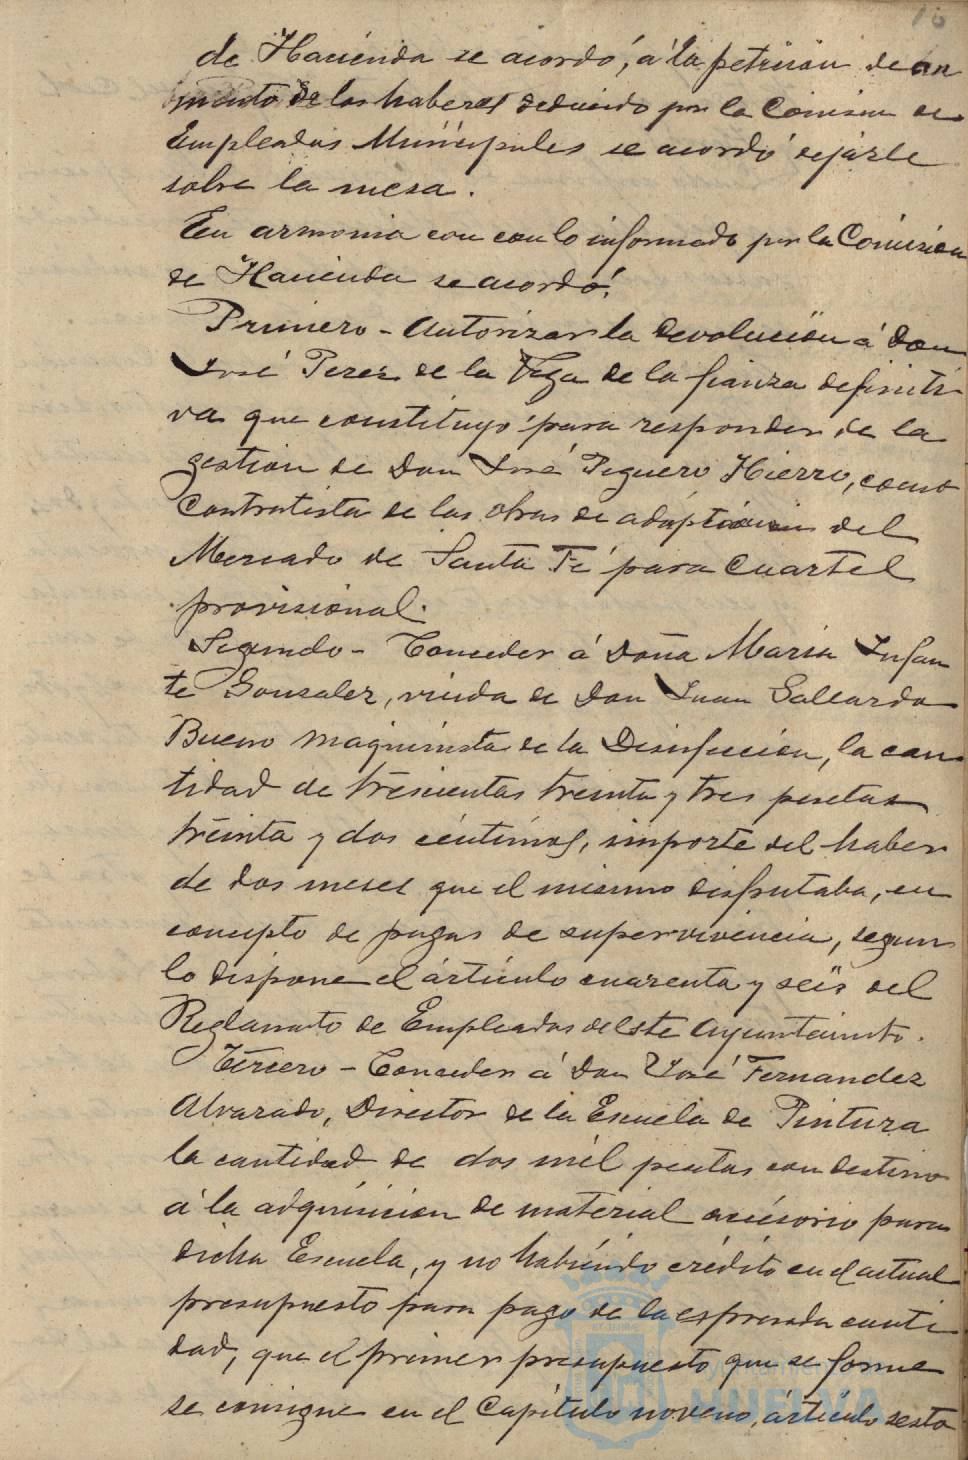 10
de Hacienda se acordó, á la peticion de au
mento de los haberes deducido por la Comision de
Empleados Municipales se acordó dejarle
sobre la mesa.
En armonia con con lo informado por la Comision
de Hacienda se acordó:
Primero - Autorizar la devolución á Don
José Perez de la Vega de la fianza definiti
va que constituyó para responder de la
gestion de Don José Peguero Hierro, como
Contratista de las obras de adaptación del
Mercado de Santa Fé para Cuartel
provisional.
Segundo - Conceder á Doña Maria Infan
te Gonzalez, viuda de Don Juan Gallardo
Bueno maquinista de la Disinfeccion, la can
tidad de trescientas treinta y tres pesetas
treinta y dos céntimos, importe del haber
de dos meses que el mismo disfrutaba, en
concepto de pagas de supervivencia, segun
lo dispone el artículo cuarenta y seis del
Reglamto de Empleados deste Ayuntamiento.
Tercero - Conceder á Don José Fernandez
Alvarado, Director de la Escuela de Pintura
la cantidad de dos mil pesetas con destino
á la adquisicion de material accesorio para
dicha Escuela, y no habiendo crédito en el actual
presupuesto para pago de la espresada canti
dad, que el primer presupuesto que se forme
se consigne en el Capítulo noveno, artículo sesto
Ayuntamiento de
HUELVA